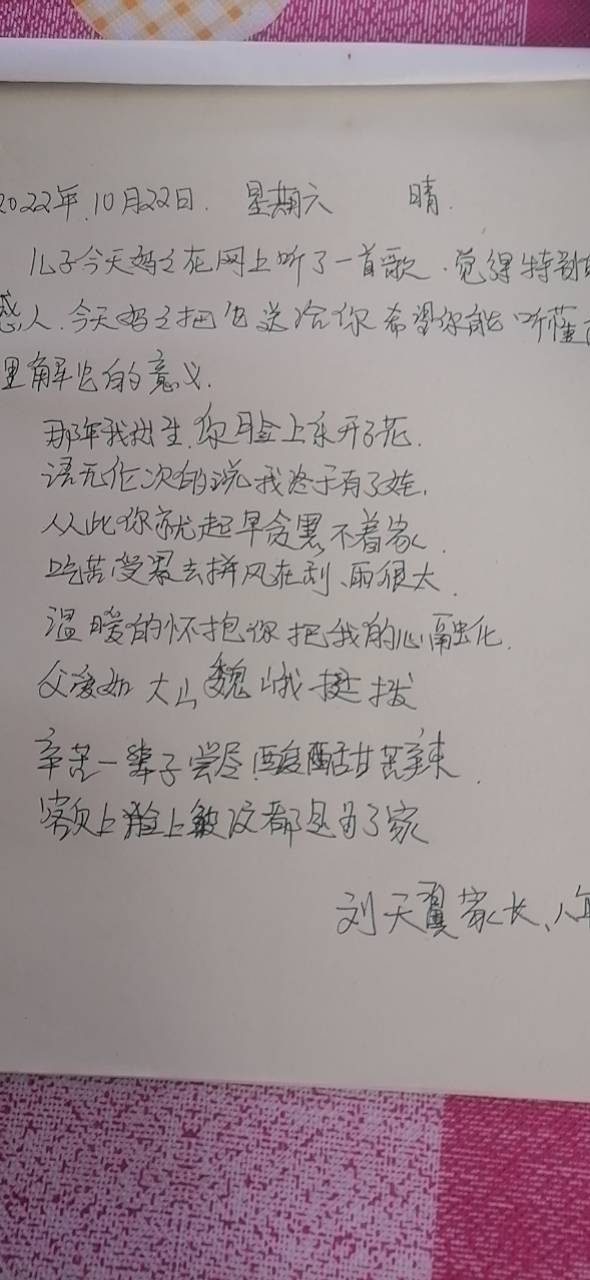 2022年.10月22日. 星期六 晴.
儿子今天妈之在网上听了一首歌.觉得特别
感人.今天妈之把它送给你希望你能听懂
理解它的意义.
那年我出生.你脸上乐开了花.
语无伦次的说我终于有了娃.
从此你就起早贪黑不着家.
吃苦受累去拼风在刮、雨很大.
温暖的怀抱你把我的心融化.
父爱如大山巍峨挺拨
辛苦一辈子尝尽酸酣甘苦辣.
额上脸上皱皮都是为了家
刘天翼家长、八年